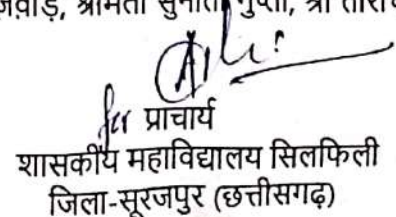 श्रीमती सुनीता गुप्ता, श्री
for प्राचार्य
शासकीय महाविद्यालय सिलफिली
जिला-सूरजपुर (छत्तीसगढ़)